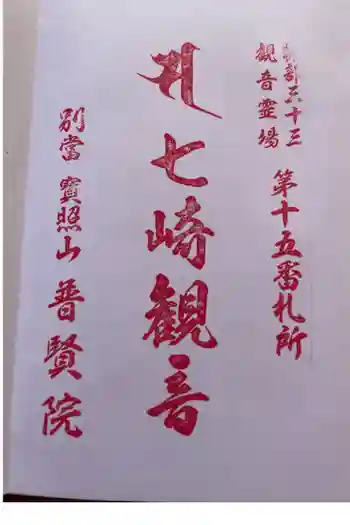 糠部三十三
観音霊場 第十五番札所
七崎観音
別當 寳照山 普賢院